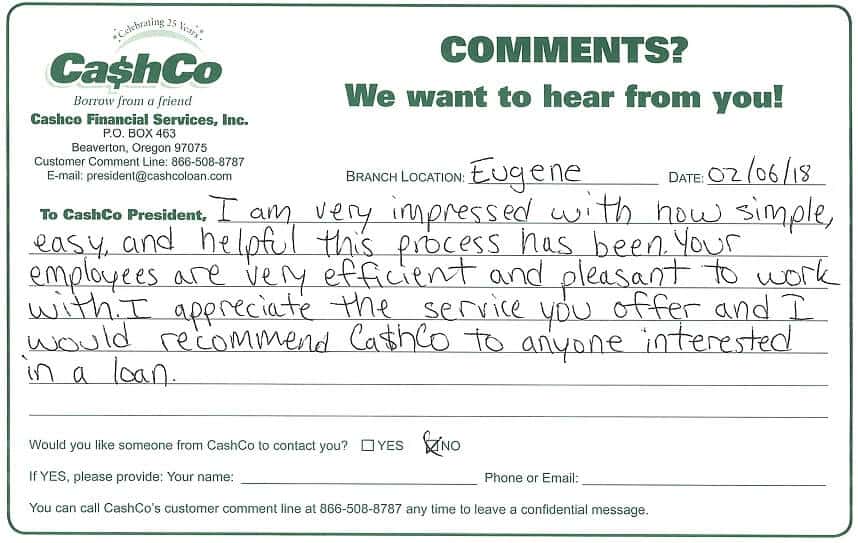 Celebrating 25 Years
Ca$hCo
Borrow from a friend
Cashco Financial Services, Inc.
P.O. BOX 463
Beaverton, Oregon 97075
Customer Comment Line: 866-508-8787
E-mail: president@cashcoloan.com
COMMENTS?
We want to hear from you!
BRANCH LOCATION: Eugene DATE: 02/06/18
To CashCo President, I am very impressed with how simple,
easy, and helpful this process has been. Your
employees are very efficient and pleasant to work
with. I appreciate the service you offer and I
would recommend Ca$hCo to anyone interested
in a loan.
Would you like someone from CashCo to contact you? ☐ YES ☒ NO
If YES, please provide: Your name: Phone or Email:
You can call CashCo's customer comment line at 866-508-8787 any time to leave a confidential message.